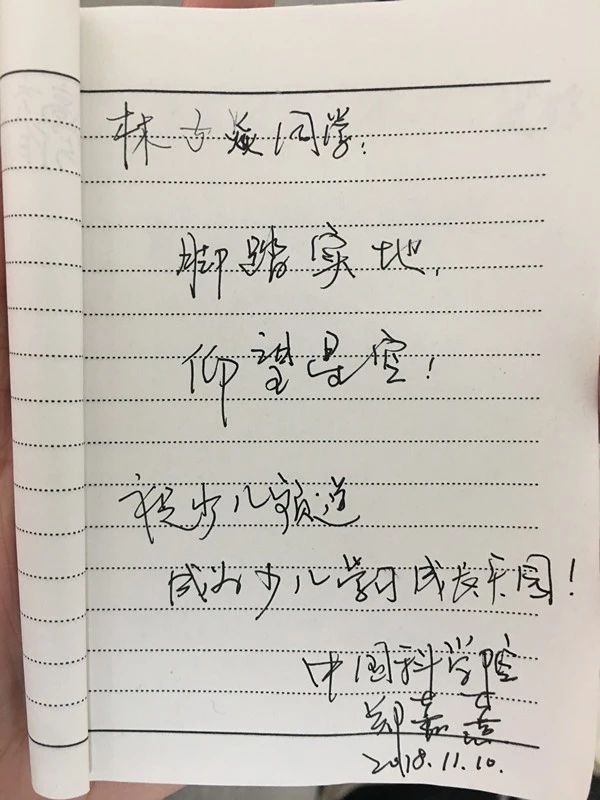 林子焱同学：
脚踏实地，
仰望星空！
祝少儿频道
成为少儿学习成长乐园！
中国科学院
郑嘉
2018.11.10.